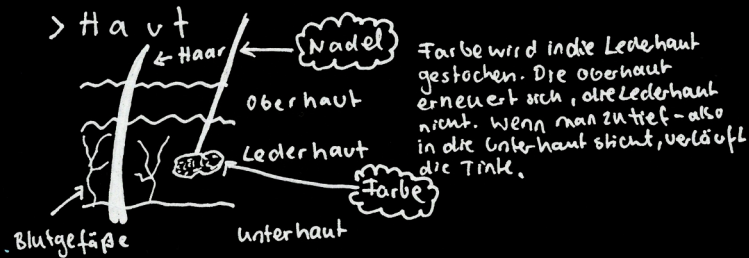 > Haut
← Haar
Nadel
Oberhaut
Lederhaut
Farbe
Blutgefäße
Unterhaut
Farbe wird in die Lederhaut
gestochen. Die Oberhaut
erneuert sich, die Lederhaut
nicht. Wenn man zu tief - also
in die Unterhaut sticht, verläuft
die Tinte.